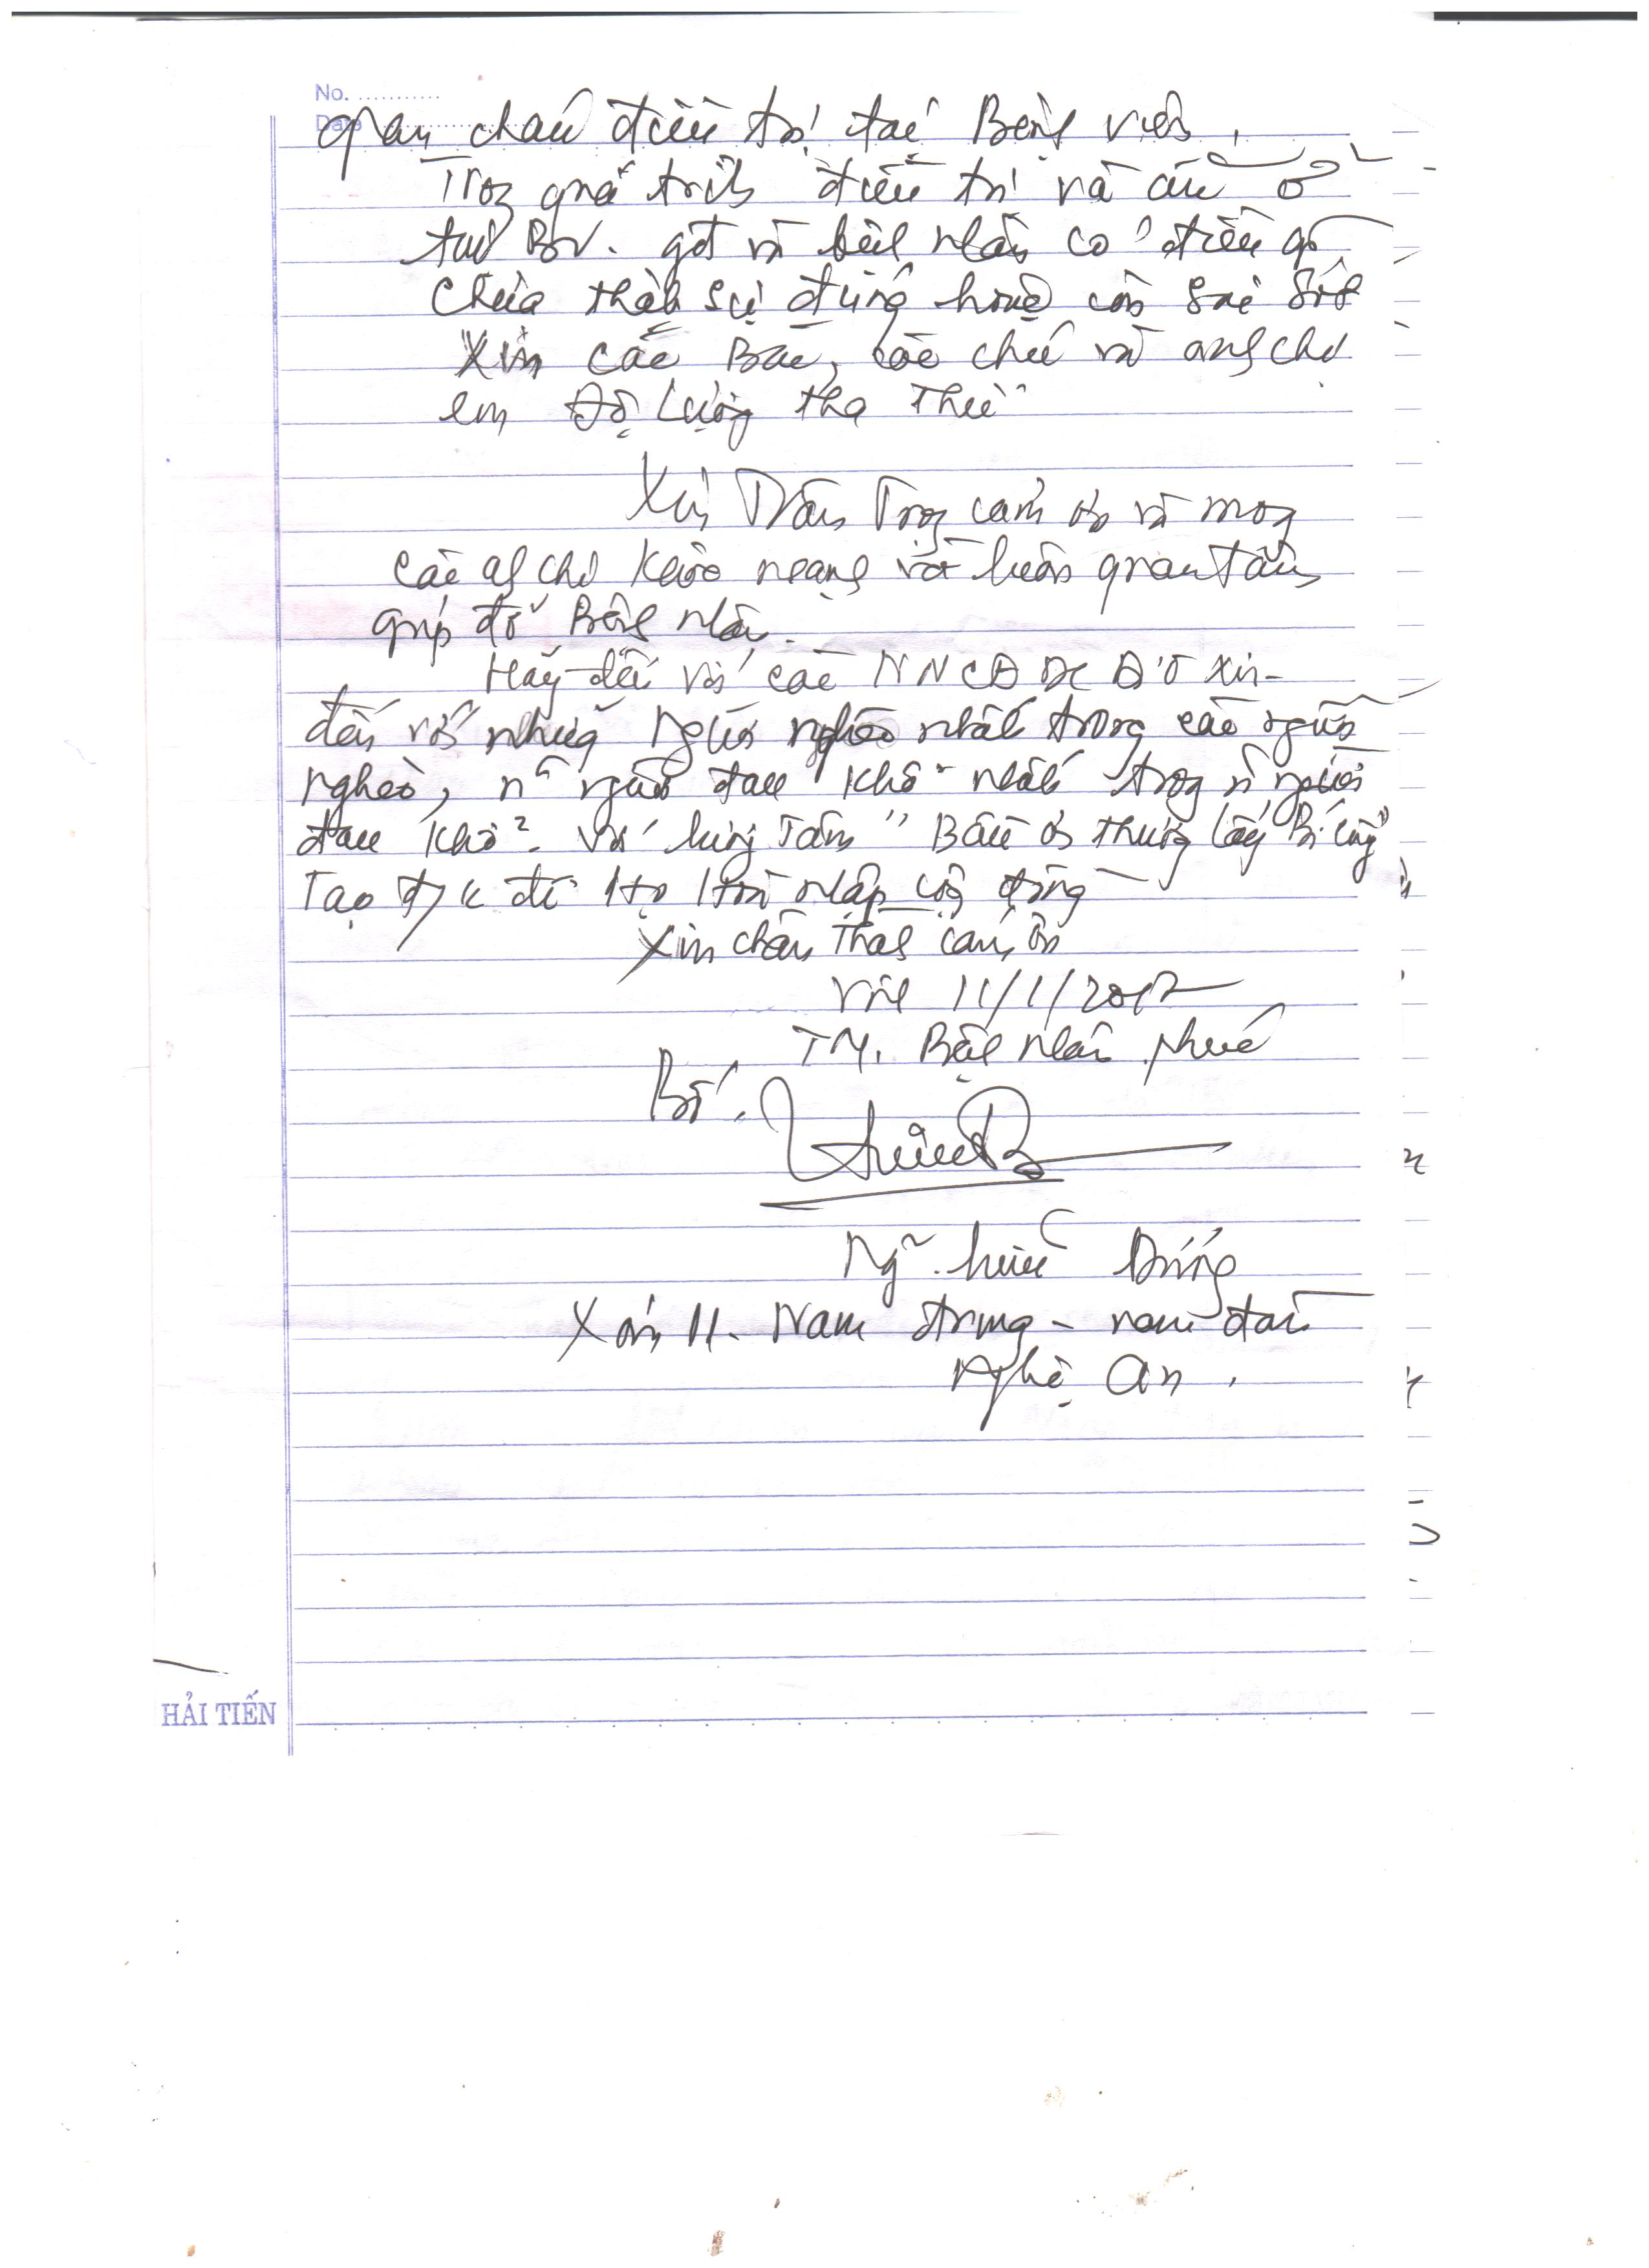 No. ............
Date
gian cháu điều trị tại Bệnh viện.
Trong quá trình điều trị và ăn ở
tại BV. gđ và bệnh nhân có điều gì
chưa thật sự đúng hoặc còn sai sót
Xin các Bác, các chú và anh chị
em Độ Lượng tha Thứ
Xin Trân Trọng cảm ơn và mong
các a chị khỏe mạng và luôn quan tâm
giúp đỡ Bệnh nhân.
Hãy đến với các NNCĐDC xin
đến với những Người nghèo nhất trong các người
nghèo, n~ người đau khổ nhất trong n~ người
đau khổ. Với lương Tâm "Bầu ơi thương lấy Bí cùng"
Tạo đ/k để Họ Hòa nhập cộng đồng
Xin chân Thành cảm ơn
Vinh 11/1/2012
TM. Bệnh nhân
Bố.
Ng~ hữu
Xóm 11. Nam trung - nam đàn
Nghệ An.
HẢI TIẾN